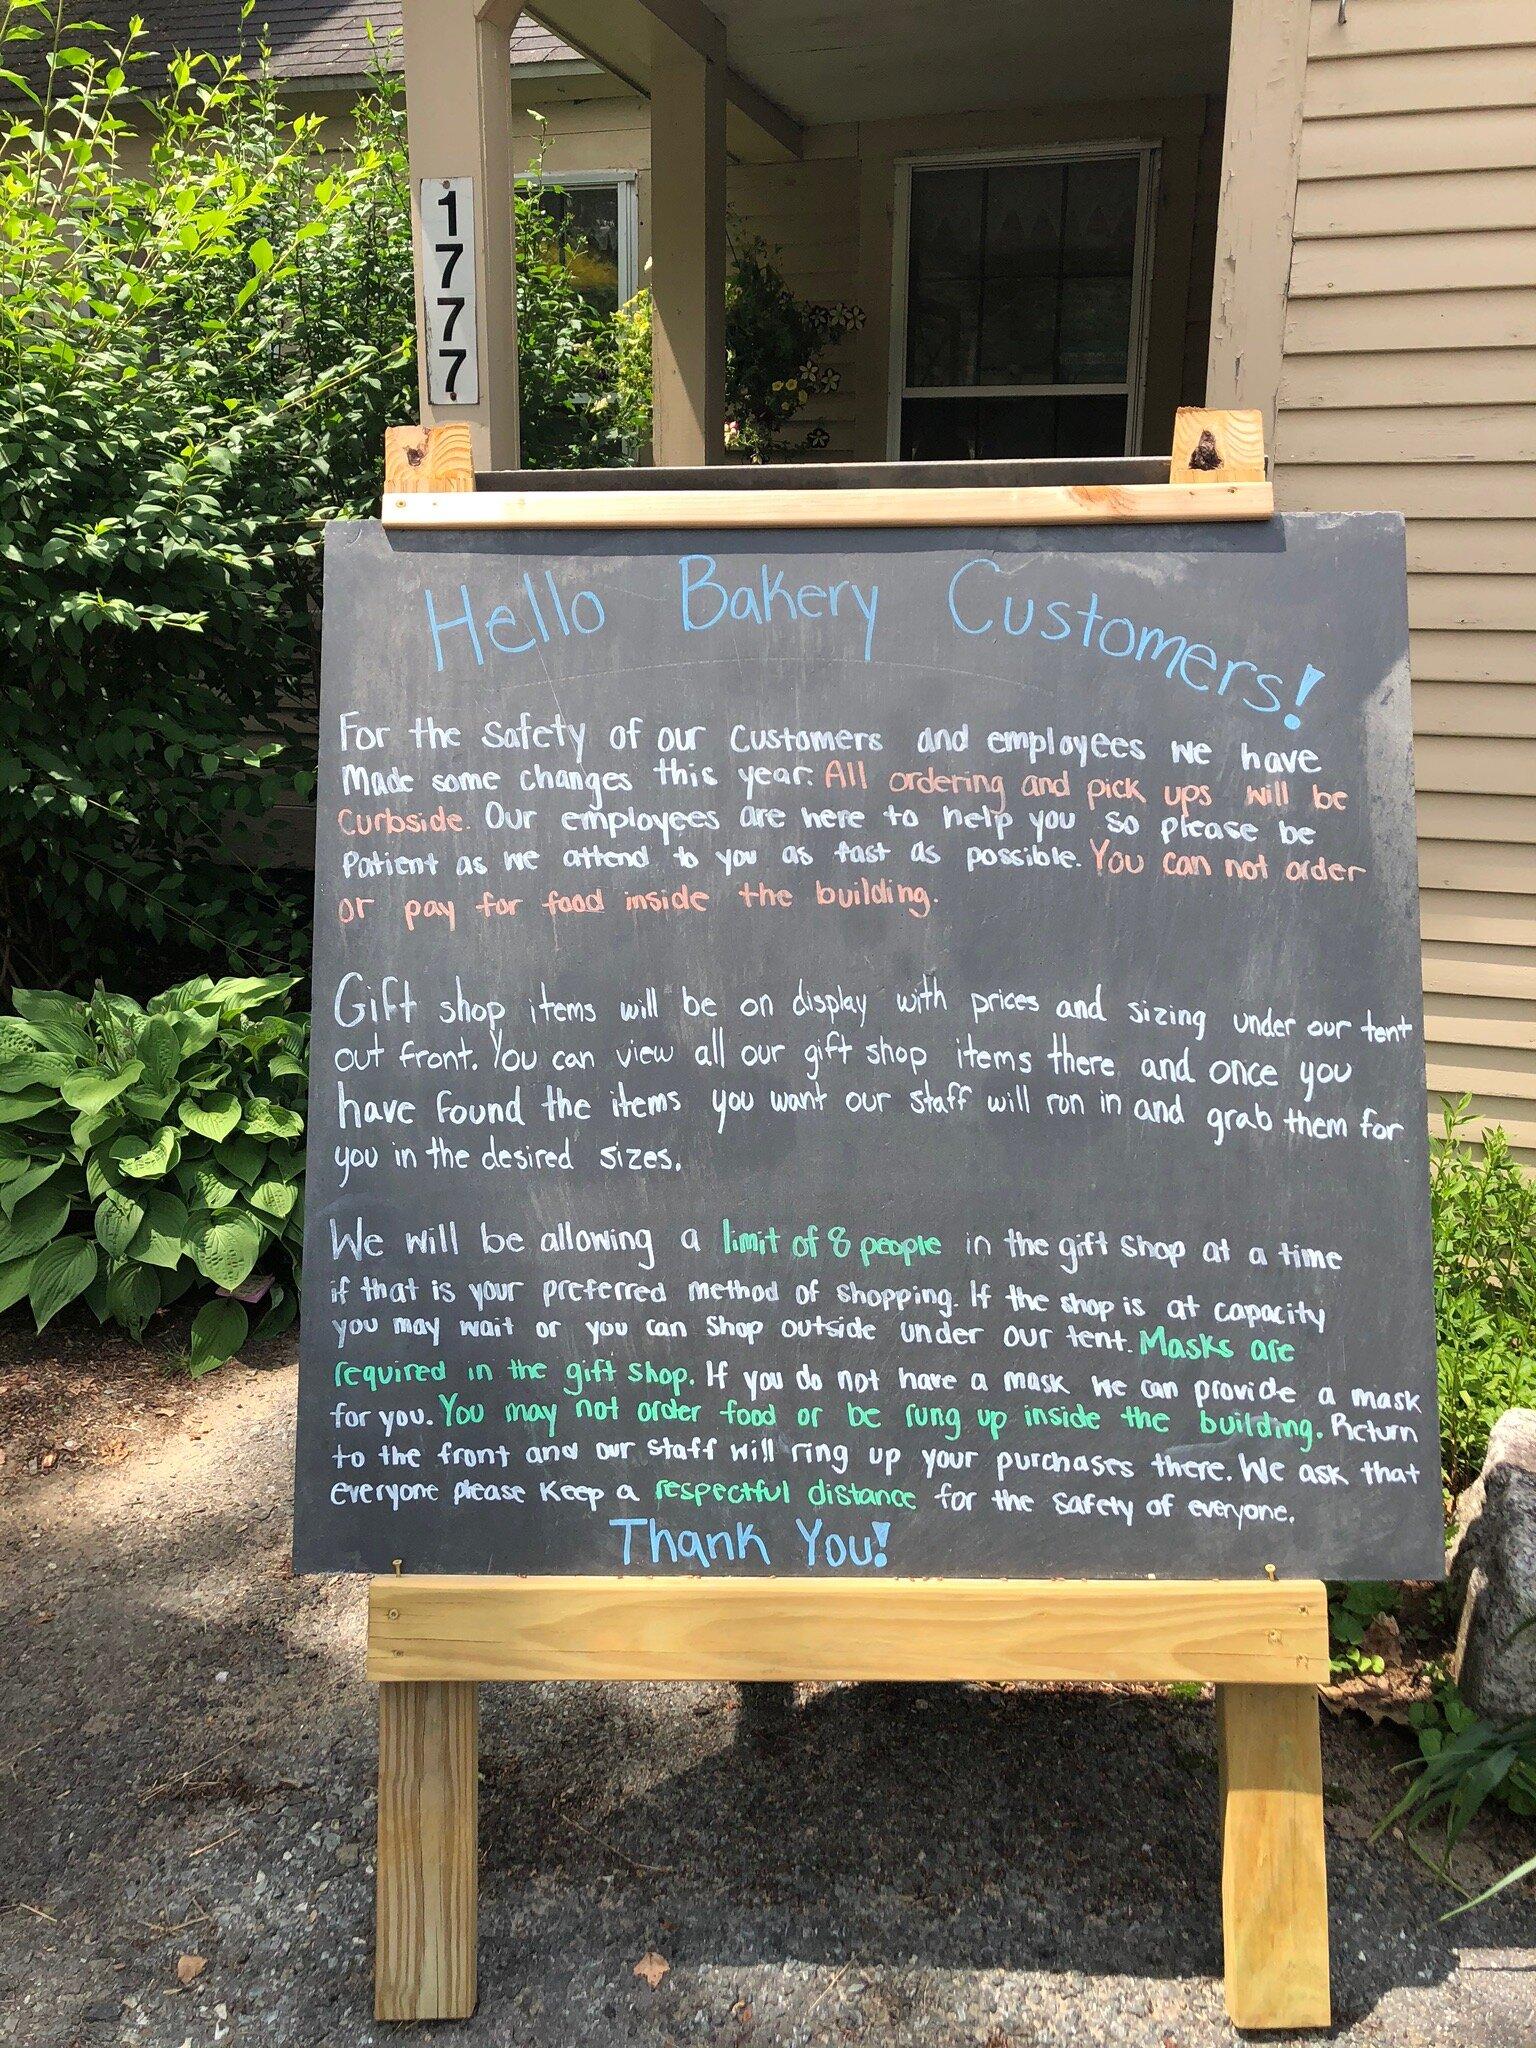 1777
Hello Bakery Customers!
For the safety of our customers and employees we have
made some changes this year. All ordering and pick ups will be
curbside. Our employees are here to help you so please be
patient as we attend to you as fast as possible. You can not order
or pay for food inside the building.
Gift shop items will be on display with prices and sizing under our tent
out front. You can view all our gift shop items there and once you
have found the items you want our staff will run in and grab them for
you in the desired sizes.
We will be allowing a limit of 8 people in the gift shop at a time
if that is your preferred method of shopping. If the shop is at capacity
you may wait or you can shop outside under our tent. Masks are
required in the gift shop. If you do not have a mask we can provide a mask
for you. You may not order food or be rung up inside the building. Return
to the front and our staff will ring up your purchases there. We ask that
everyone please keep a respectful distance for the safety of everyone.
Thank You!